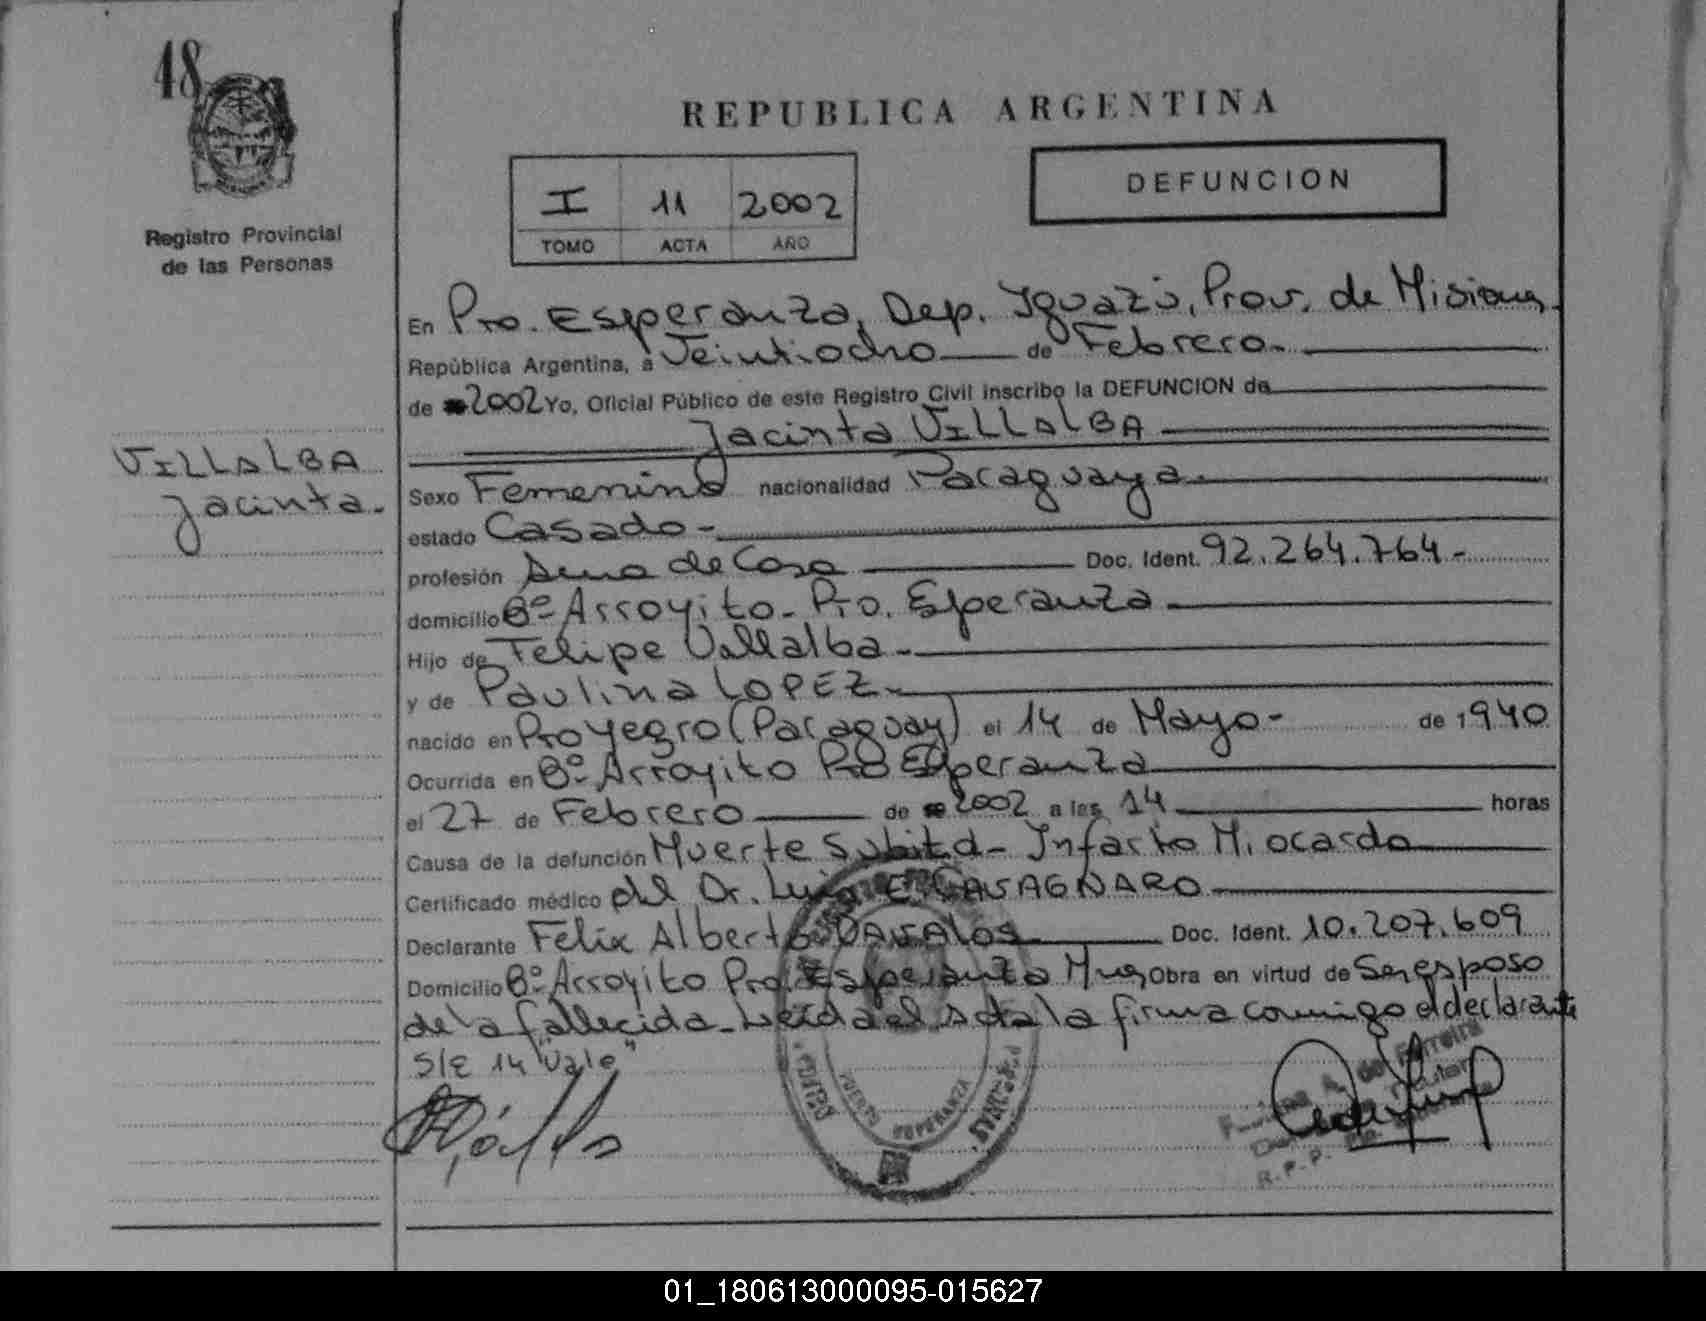 48
Registro Provincial
de las Personas
REPUBLICA ARGENTINA
I 11 2002
TOMO ACTA AÑO
DEFUNCION
VILLALBA
Jacinta.
En Pto. Esperanza, Dep. Iguazú, Prov. de Misiones.
República Argentina, a Veintiocho de Febrero.
de 2002 Yo, Oficial Público de este Registro Civil inscribo la DEFUNCION de
Jacinta VILLALBA
Sexo Femenino nacionalidad Paraguaya.
estado Casado-
profesión Ama de Casa Doc. Ident. 92.264.764-
domicilio Bº Arroyito- Pto. Esperanza
Hijo de Felipe Vallalba-
y de Paulina LOPEZ-
nacido en Ptoyegro (Paraguay) el 14 de Mayo- de 1940
Ocurrida en Bº Arroyito Pto Esperanza
el 27 de Febrero de 2002 a las 14 horas
Causa de la defunción Muerte Subita- Infarto Miocardo
Certificado médico del Dr. Luis E. CAVAGNARO
Declarante Felix Alberto DAVALOS Doc. Ident. 10.207.609
Domicilio Bº Arroyito Pto. Esperanza Mnes Obra en virtud de Ser esposo
de la fallecida- Leida el Acta la firma conmigo el declarante
S/E 14 "Vale"
PUERTO ESPERANZA
R.P.P.
01_180613000095-015627